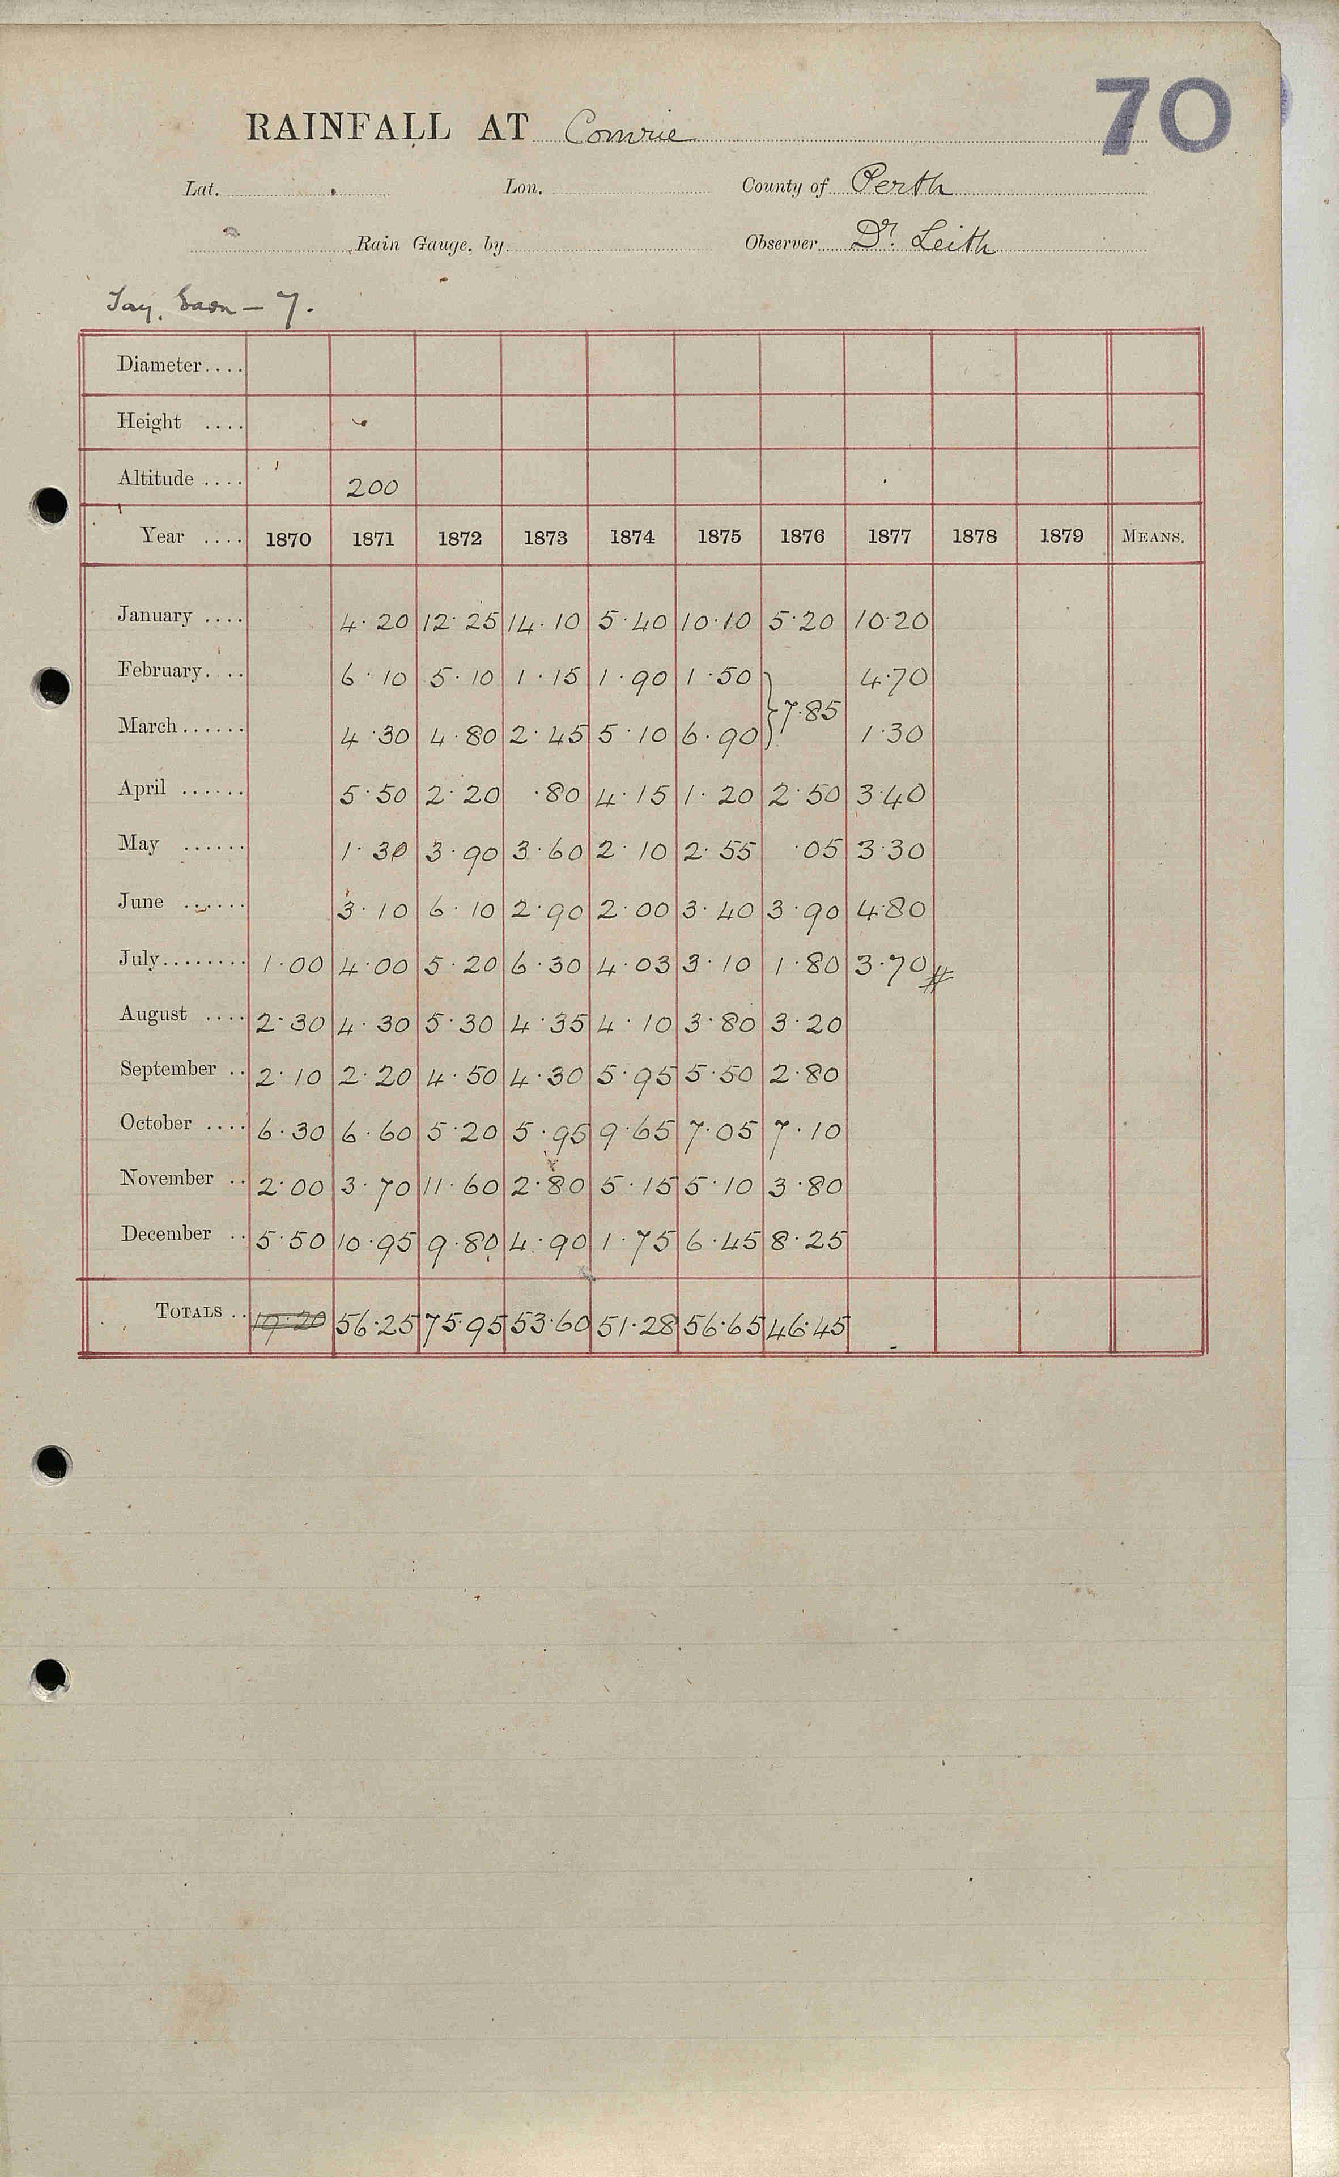 70
RAINFALL AT Comrie
Lat. Lon. County of Perth
Rain Gauge, by Observer Dr. Leith
Tay, Earn — 7.
Diameter....
Height ....
Altitude .... 200
Year .... 1870 1871 1872 1873 1874 1875 1876 1877 1878 1879 MEANS.
January .... 4·20 12·25 14·10 5·40 10·10 5·20 10·20
February. .. 6·10 5·10 1·15 1·90 1·50 4·70
} 7·85
March...... 4·30 4·80 2·45 5·10 6·90 1·30
April ...... 5·50 2·20 ·80 4·15 1·20 2·50 3·40
May ...... 1·30 3·90 3·60 2·10 2·55 ·05 3·30
June ...... 3·10 6·10 2·90 2·00 3·40 3·90 4·80
July........ 1·00 4·00 5·20 6·30 4·03 3·10 1·80 3·70 #
August .... 2·30 4·30 5·30 4·35 4·10 3·80 3·20
September .. 2·10 2·20 4·50 4·30 5·95 5·50 2·80
October .... 6·30 6·60 5·20 5·95 9·65 7·05 7·10
November .. 2·00 3·70 11·60 2·80 5·15 5·10 3·80
December .. 5·50 10·95 9·80 4·90 1·75 6·45 8·25
TOTALS .. 19·20 56·25 75·95 53·60 51·28 56·65 46·45